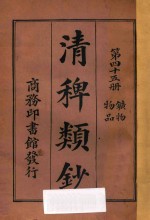 第四十五冊
礦物
物品
清稗類鈔
商務印書館發行